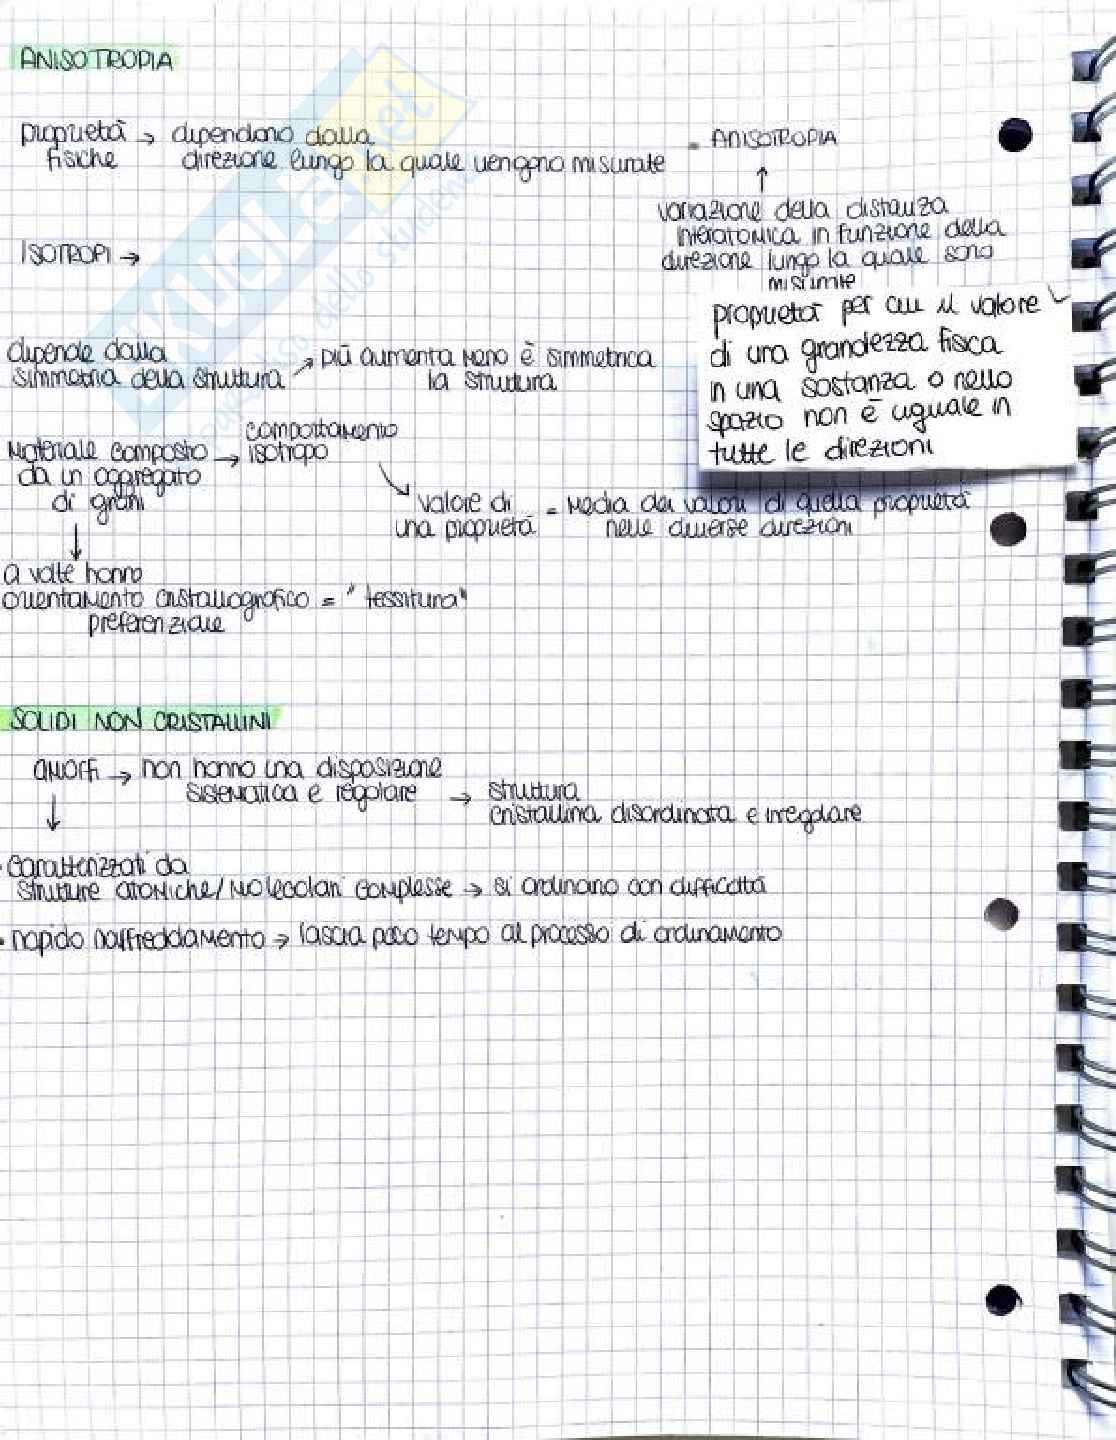 ANISOTROPIA
proprietà → dipendono dalla
fisiche direzione lungo la quale vengono misurate = ANISOTROPIA
↑
variazione della distanza
interatomica in funzione della
direzione lungo la quale sono
misurate
ISOTROPI →
proprietà per cui il valore
di una grandezza fisica
in una sostanza o nello
spazio non è uguale in
tutte le direzioni
dipende dalla
simmetria della struttura → più aumenta meno è simmetrica
la struttura
Materiale composto → comportamento
da un aggregato isotropo
di grani
valore di = media dei valori di quella proprietà
una proprietà nelle diverse direzioni
↓
a volte hanno
orientamento cristallografico = "tessitura"
preferenziale
SOLIDI NON CRISTALLINI
amorfi → non hanno una disposizione
sistematica e regolare → struttura
cristallina disordinata e irregolare
↓
• caratterizzati da
strutture atomiche/molecolari complesse → si ordinano con difficoltà
• rapido raffreddamento → lascia poco tempo al processo di ordinamento
SKUOLA.net